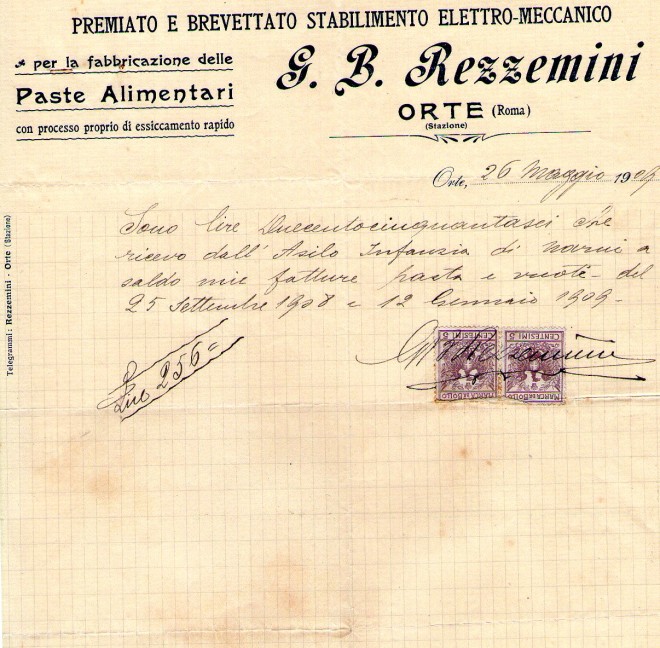 PREMIATO E BREVETTATO STABILIMENTO ELETTRO-MECCANICO
per la fabbricazione delle
Paste Alimentari
con processo proprio di essiccamento rapido
G. B. Rezzemini
ORTE (Roma)
(Stazione)
Orte, 26 Maggio 1909
Sono lire Duecentocinquantasei che
ricevo dall' Asilo Infanzia di Narni a
saldo mie fatture pasta e vuote - del
25 Settembre 1908 e 12 Gennaio 1909-
Lire 256
G B Rezzemini
CENTESIMI 5
MARCA DA BOLLO
CENTESIMI 5
MARCA DA BOLLO
Telegrammi: Rezzemini - Orte (Stazione)